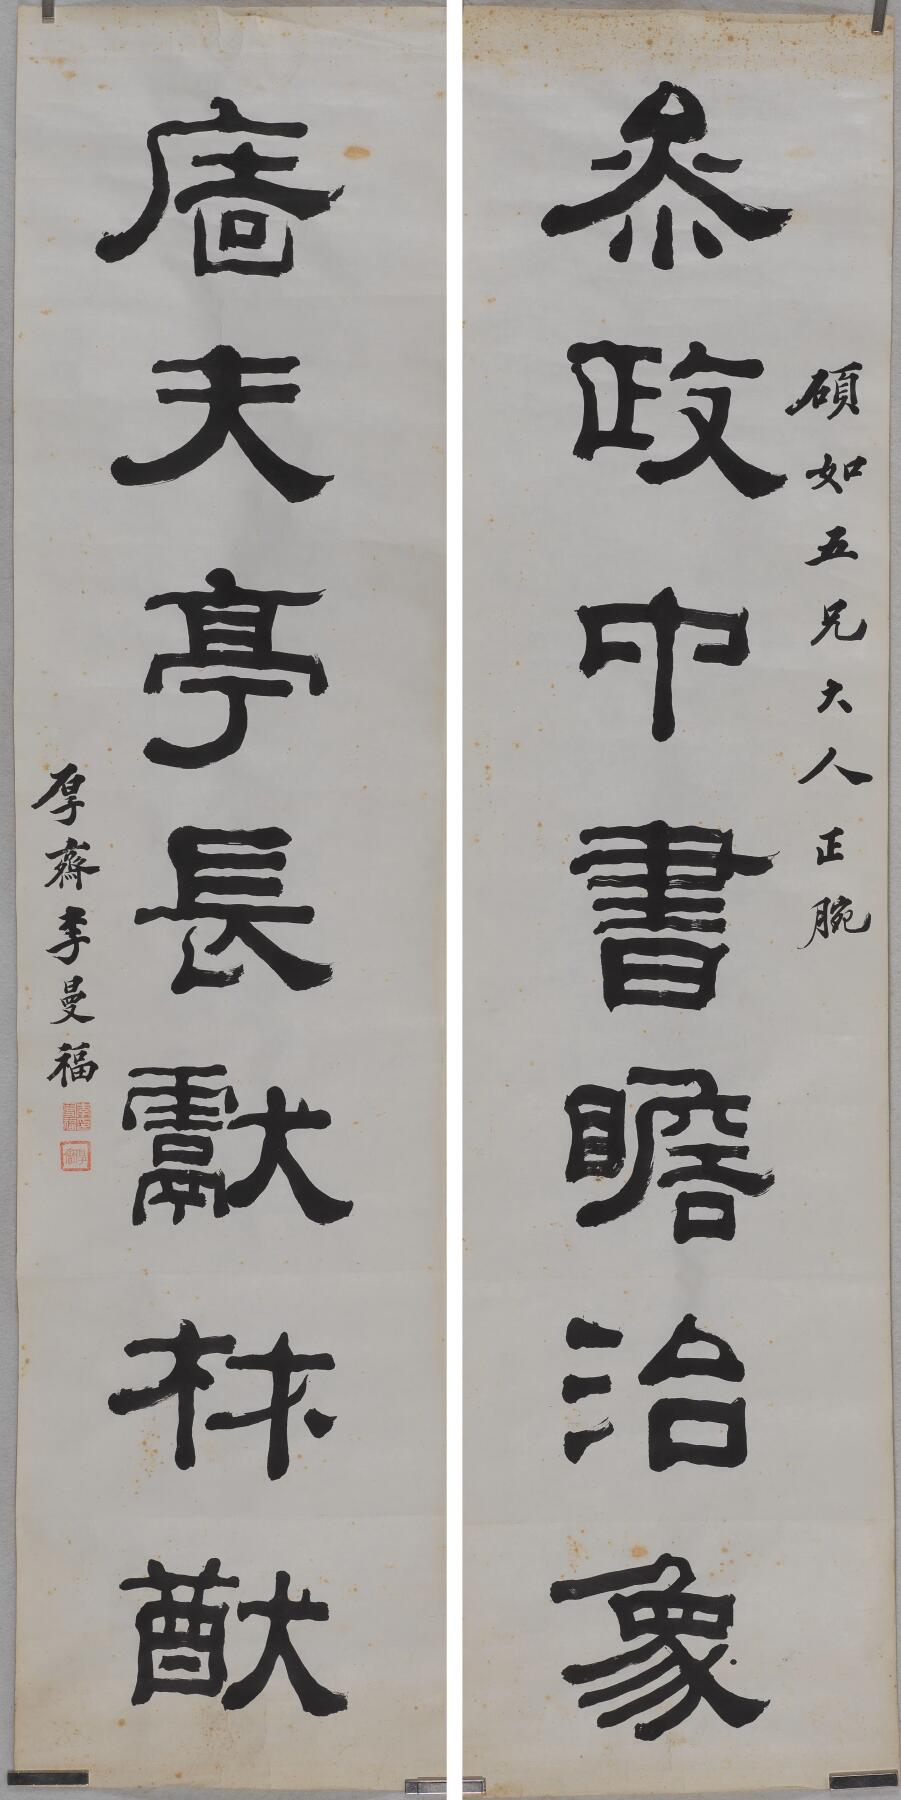 碩如五兄大人正腕
參政中書瞻治象
廧夫亭長獻猷
厚齋李曼福